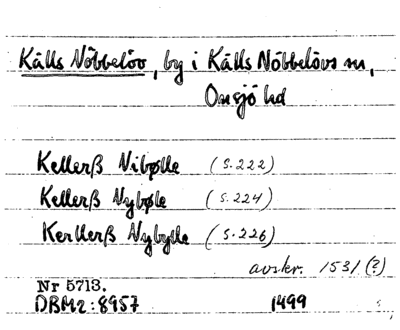 Källs Nöbbelöv, by i Källs Nöbbelövs sn,
Onsjö hd
Kellerß Nibølle (s. 222)
Kellerß Nybøle (s. 224)
Kerllerß Nybylle (s. 226)
avskr. 1531 (?)
Nr 5713.
DBM2:8957 1499